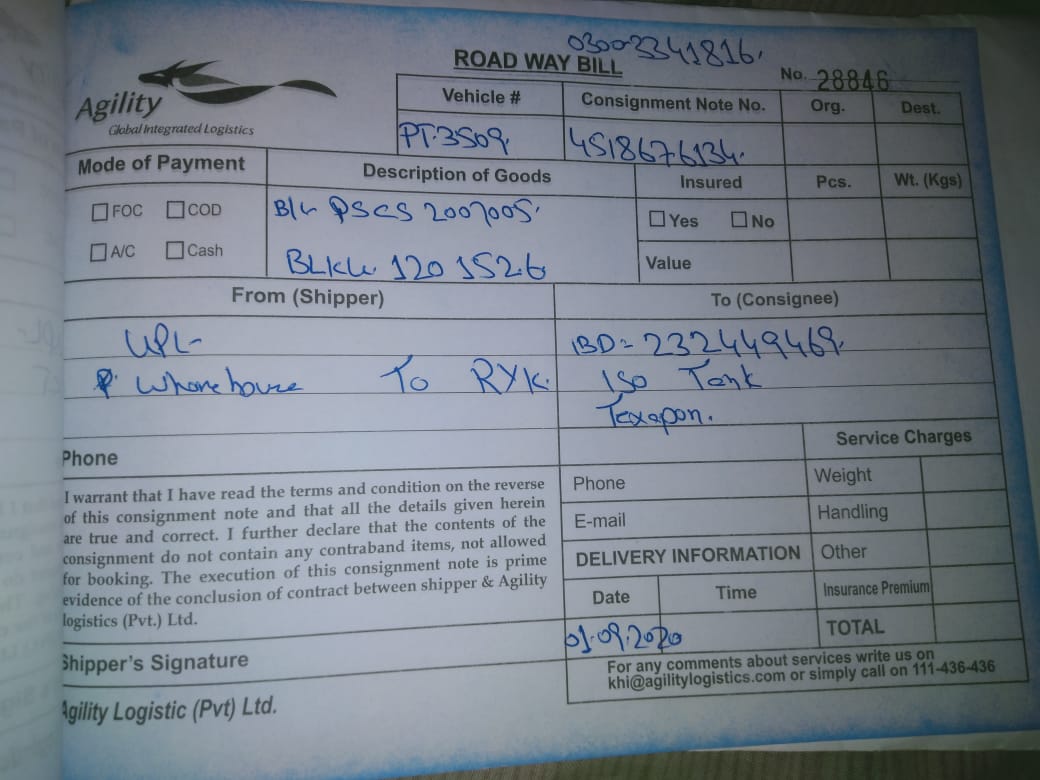 0300-2341816.
ROAD WAY BILL
No. 28846
Agility
Global Integrated Logistics
Vehicle # Consignment Note No. Org. Dest.
PT.3509. 4518676134.
Mode of Payment Description of Goods Insured Pcs. Wt. (Kgs)
FOC COD
A/C Cash
B/L PSCS 2007005.
Yes No
BLKU. 120 1526
Value
From (Shipper) To (Consignee)
UPL- IBD= 232449469.
Wharehouse To RYK. Iso Tank
Texapon.
Phone
Service Charges
I warrant that I have read the terms and condition on the reverse
of this consignment note and that all the details given herein
are true and correct. I further declare that the contents of the
consignment do not contain any contraband items, not allowed
for booking. The execution of this consignment note is prime
evidence of the conclusion of contract between shipper & Agility
logistics (Pvt.) Ltd.
Phone Weight
E-mail Handling
DELIVERY INFORMATION Other
Date Time Insurance Premium
01.09.2020 TOTAL
Shipper's Signature
For any comments about services write us on
khi@agilitylogistics.com or simply call on 111-436-436
Agility Logistic (Pvt) Ltd.